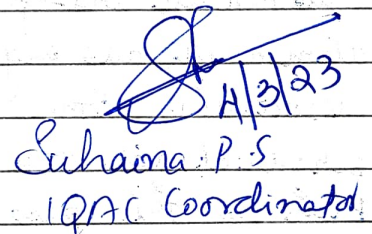 4/3/23
Suhaina P.S
IQAC Coordinator